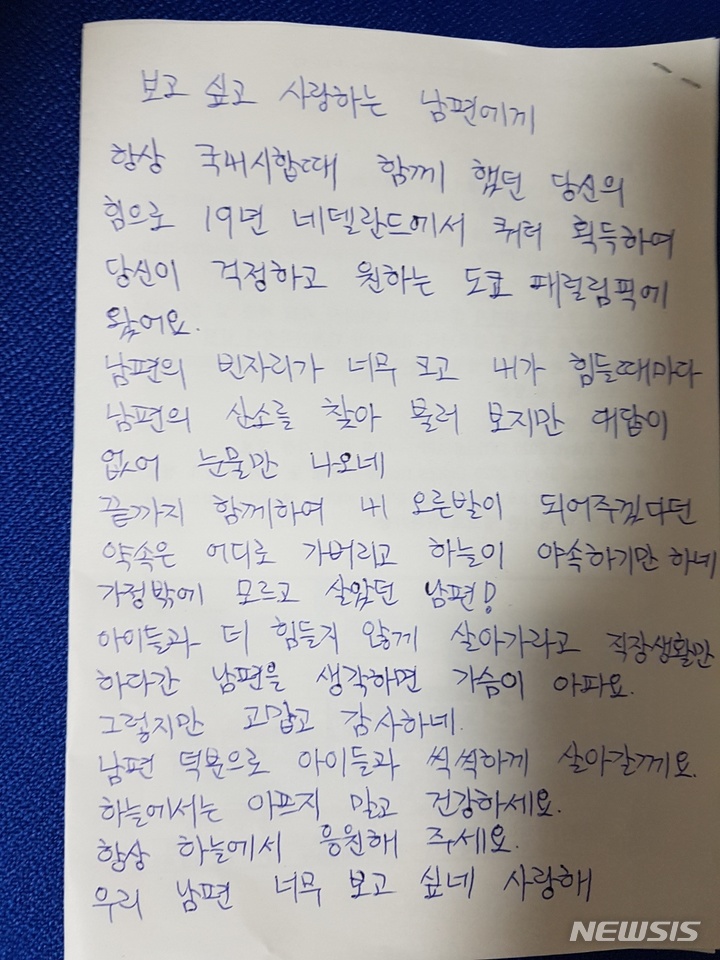 보고 싶고 사랑하는 남편에게
항상 국내시합때 함께 했던 당신의
힘으로 19년 네델란드에서 쿼터 획득하여
당신이 걱정하고 원하는 도쿄 패럴림픽에
왔어요.
남편의 빈자리가 너무 크고 내가 힘들때마다
남편의 산소를 찾아 물러 보지만 대답이
없어 눈물만 나오네
끝까지 함께하여 내 오른발이 되어주겠다던
약속은 어디로 가버리고 하늘이 야속하기만 하네
가정밖에 모르고 살았던 남편!
아이들과 더 힘들지 않게 살아가라고 직장생활만
하다간 남편을 생각하면 가슴이 아파요.
그렇지만 고맙고 감사하네.
남편 덕분으로 아이들과 씩씩하게 살아갈께요.
하늘에서는 아프지 말고 건강하세요.
항상 하늘에서 응원해 주세요.
우리 남편 너무 보고 싶네 사랑해
NEWSIS